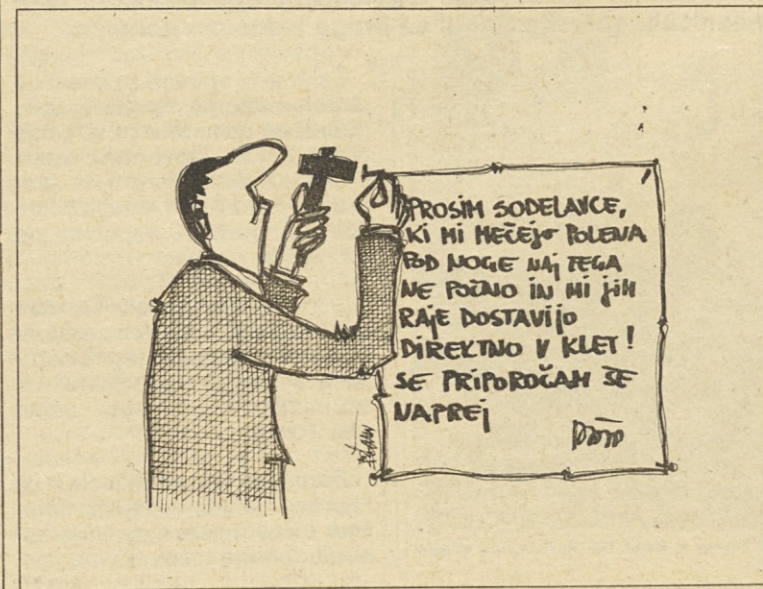 PROSIM SODELAVCE,
KI MI MEČEJO POLENA
POD NOGE NAJ TEGA
NE POČNO IN MI JIH
RAJE DOSTAVIJO
DIREKTNO V KLET!
SE PRIPOROČAM ŠE
NAPREJ